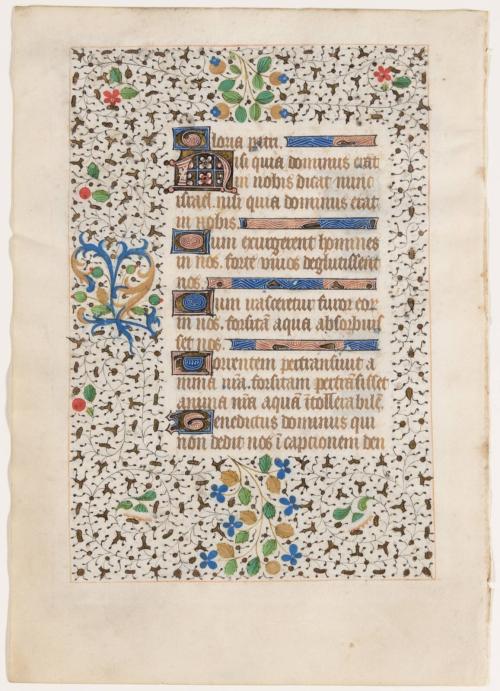 Gloria patri.
Nisi quia dominus erat
in nobis dicat nunc
israel. nisi quia dominus erat
in nobis.
Cum exurgerent homines
in nos. forte vivos deglutissent
nos.
Cum irasceretur furor eor
in nos. forsitā aqua absorbuis
set nos.
Torrentem pertransivit a
nima nr̄a. forsitam pertrāsisset
anima nr̄a aquā ītollerabilē.
Benedictus dominus qui
non dedit nos ī captionem den